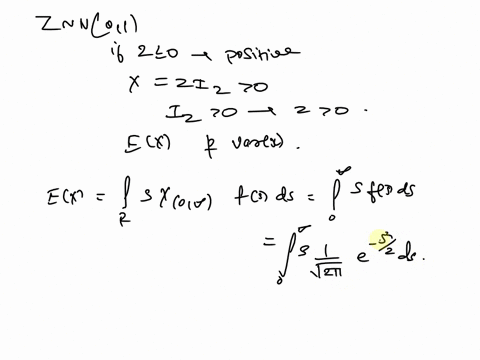 Z ~ N(0,1)
if Z ≤ 0 → positive
X = Z I_Z > 0
I_Z > 0 → Z > 0 .
E(X) & var(x) .
E(X) = ∫_R s χ_(0,∞) f(s) ds = ∫_0^∞ s f(s) ds
= ∫_0^∞ s 1/√2π e^(-s²/2) ds .